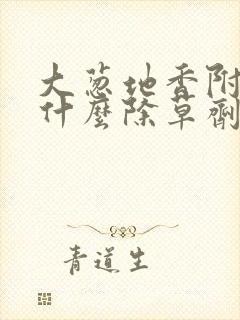 大葱地香附
什麽除草劑
青道生